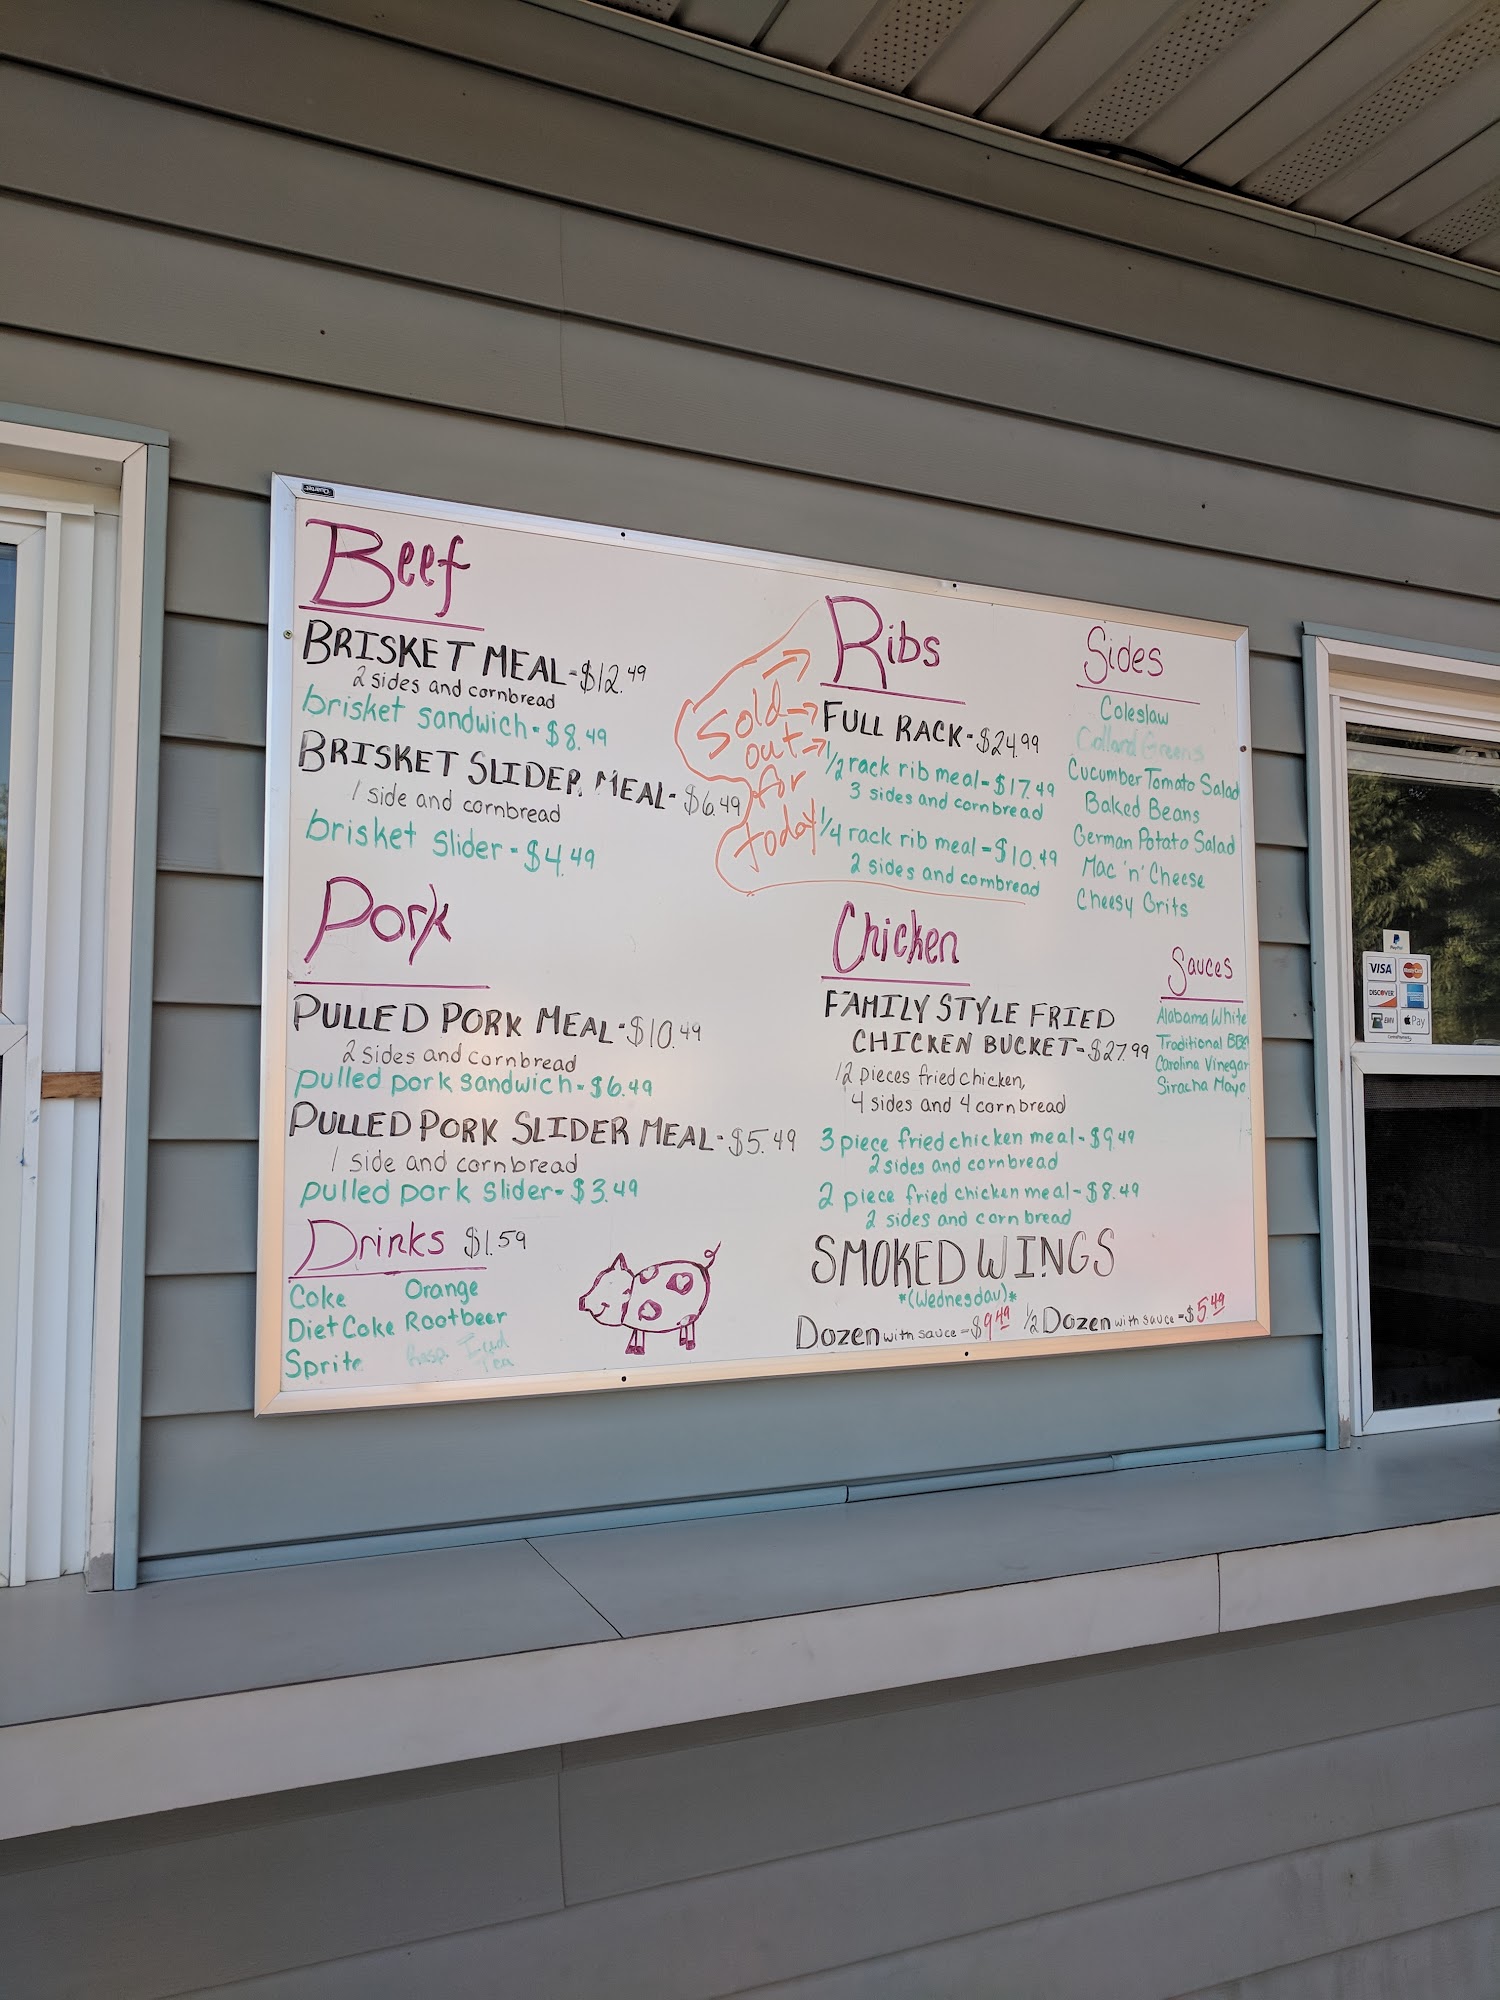 Beef
BRISKET MEAL - $12.49
2 sides and cornbread
brisket sandwich - $8.49
BRISKET SLIDER MEAL - $6.49
1 side and cornbread
brisket slider - $4.49
Pork
PULLED PORK MEAL - $10.49
2 sides and cornbread
pulled pork sandwich - $6.49
PULLED PORK SLIDER MEAL - $5.49
1 side and cornbread
pulled pork slider - $3.49
Drinks $1.59
Coke Orange
Diet Coke Rootbeer
Sprite Rasp. Iced
Tea
Sold
out
for
today
Ribs
FULL RACK - $24.99
1/2 rack rib meal - $17.49
3 sides and cornbread
1/4 rack rib meal - $10.49
2 sides and cornbread
Chicken
FAMILY STYLE FRIED
CHICKEN BUCKET - $27.99
12 pieces fried chicken,
4 sides and 4 cornbread
3 piece fried chicken meal - $9.49
2 sides and cornbread
2 piece fried chicken meal - $8.49
2 sides and cornbread
SMOKED WINGS
*(Wednesday)*
Dozen with sauce - $9.49 1/2 Dozen with sauce - $5.49
Sides
Coleslaw
Collard Greens
Cucumber Tomato Salad
Baked Beans
German Potato Salad
Mac 'n' Cheese
Cheesy Grits
Sauces
Alabama White
Traditional BBQ
Carolina Vinegar
Siracha Mayo
PayPal
VISA MasterCard
DISCOVER
EMV Pay